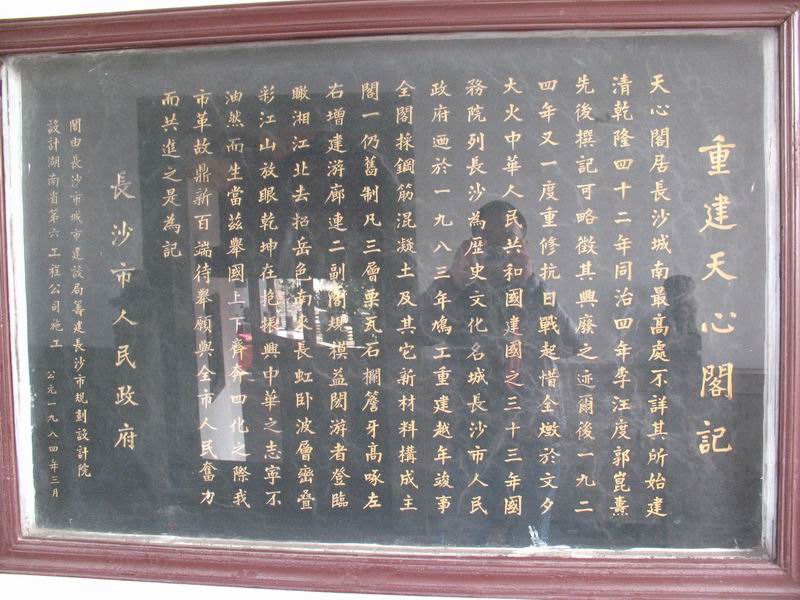 重建天心閣記
天心閣居長沙城南最高處不詳其所始建
清乾隆四十二年同治四年李汪度郭崑燾
先後撰記可略徵其興廢之迹爾後一九二
四年又一度重修抗日戰起惜全燬於文夕
大火中華人民共和國建國之三十三年國
務院列長沙為歷史文化名城長沙市人民
政府迺於一九八三年鳩工重建越年竣事
全閣採鋼筋混凝土及其它新材料構成主
閣一仍舊制凡三層栗瓦石欄簷牙高啄左
右增建游廊連二副閣規模益閎游者登臨
瞰湘江北去招岳色南來長虹卧波層巒叠
彩江山放眼乾坤在抱振興中華之志寧不
油然而生當茲舉國上下齊奔四化之際我
市革故鼎新百端待舉願與全市人民奮力
而共進之是為記
長沙市人民政府
閣由長沙市城市建設局籌建長沙市規劃設計院
設計湖南省第六工程公司施工 公元一九八四年三月